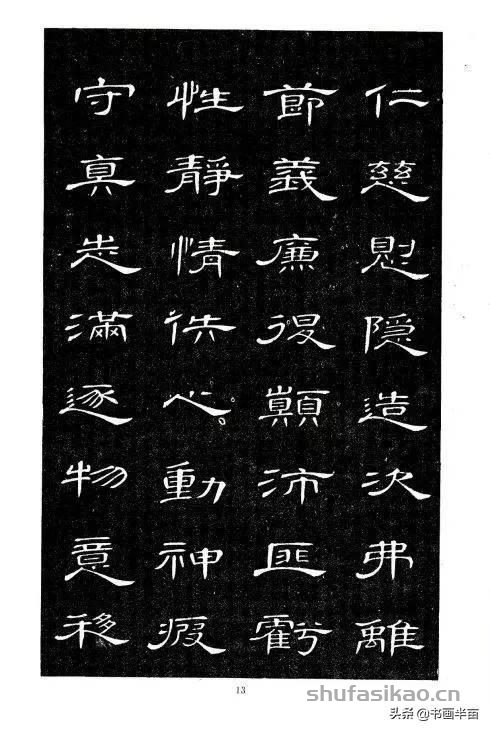 仁慈惻隐造次弗離
節義廉退顛沛匪虧
性靜情佚心動神疲
守真志滿逐物意移
13
shufasikao.cn
头条@书画半亩